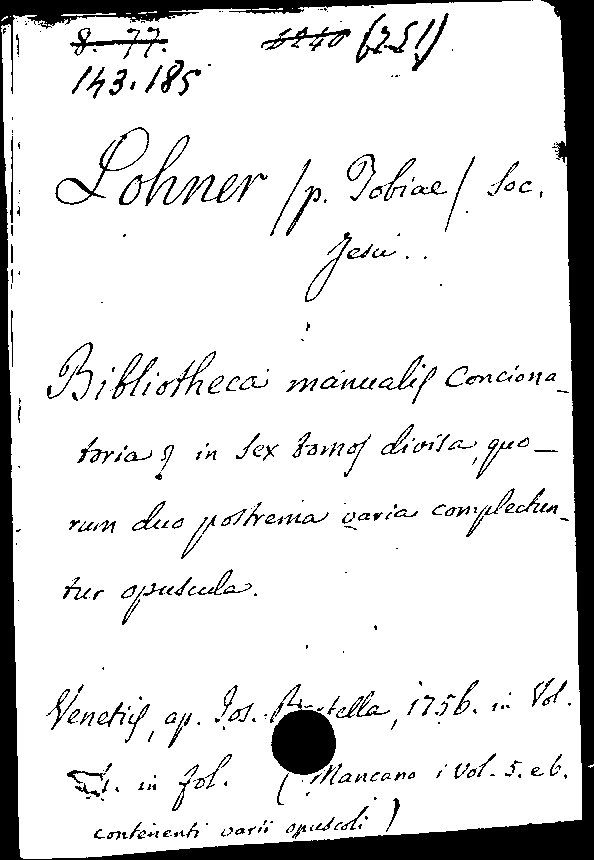 8. 77. 6240 (251)
143.185
Lohner /p. Tobiae/ Soc.
Jesu..
Bibliotheca manualis Conciona-
toria in sex tomos divisa, quo-
rum duo postrema varia complectun-
tur opuscula.
Venetiis, ap. Jos. 1756. in Vol.
in fol. (Mancano i Vol. 5. e 6.
contenenti varii opuscoli)